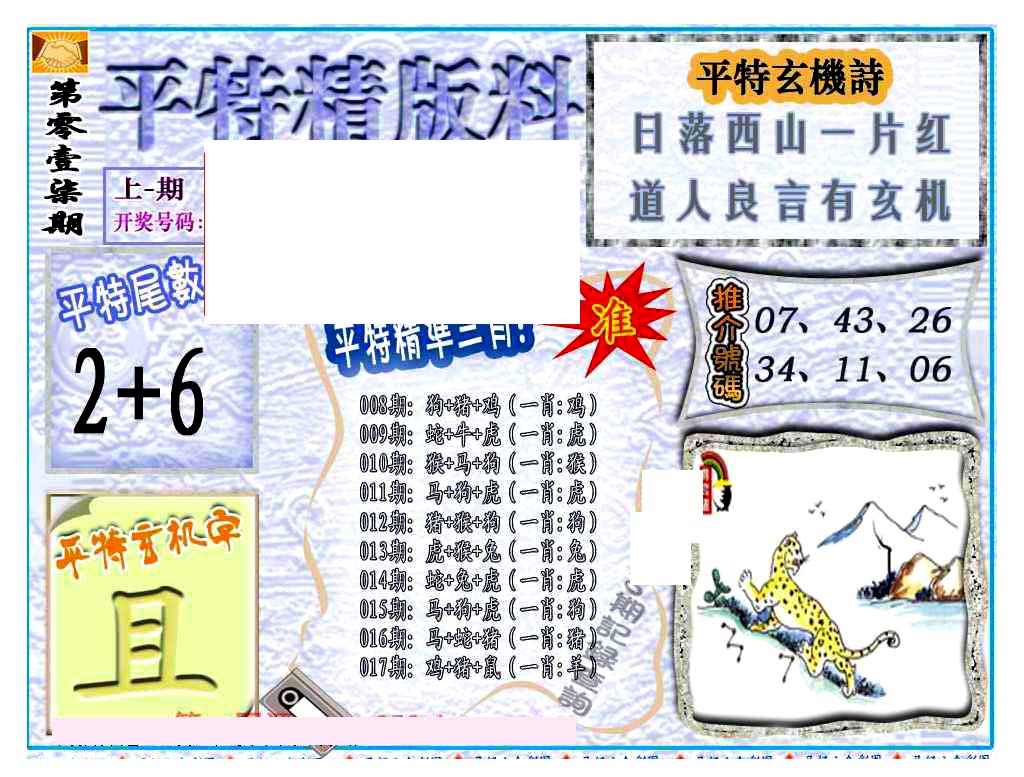 第零壹柒期
平特精版料
上-期
开奖号码:
平特玄機詩
日落西山一片红
道人良言有玄机
平特尾數
2+6
平特精準三肖!
准
推介號碼
07、43、26
34、11、06
008期: 狗+猪+鸡(一肖:鸡)
009期: 蛇+牛+虎(一肖:虎)
010期: 猴+马+狗(一肖:猴)
011期: 马+狗+虎(一肖:虎)
012期: 猪+猴+狗(一肖:狗)
013期: 虎+猴+兔(一肖:兔)
014期: 蛇+兔+虎(一肖:虎)
015期: 马+狗+虎(一肖:狗)
016期: 马+蛇+猪(一肖:猪)
017期: 鸡+猪+鼠(一肖:羊)
期記錄查詢
平特玄机字
且